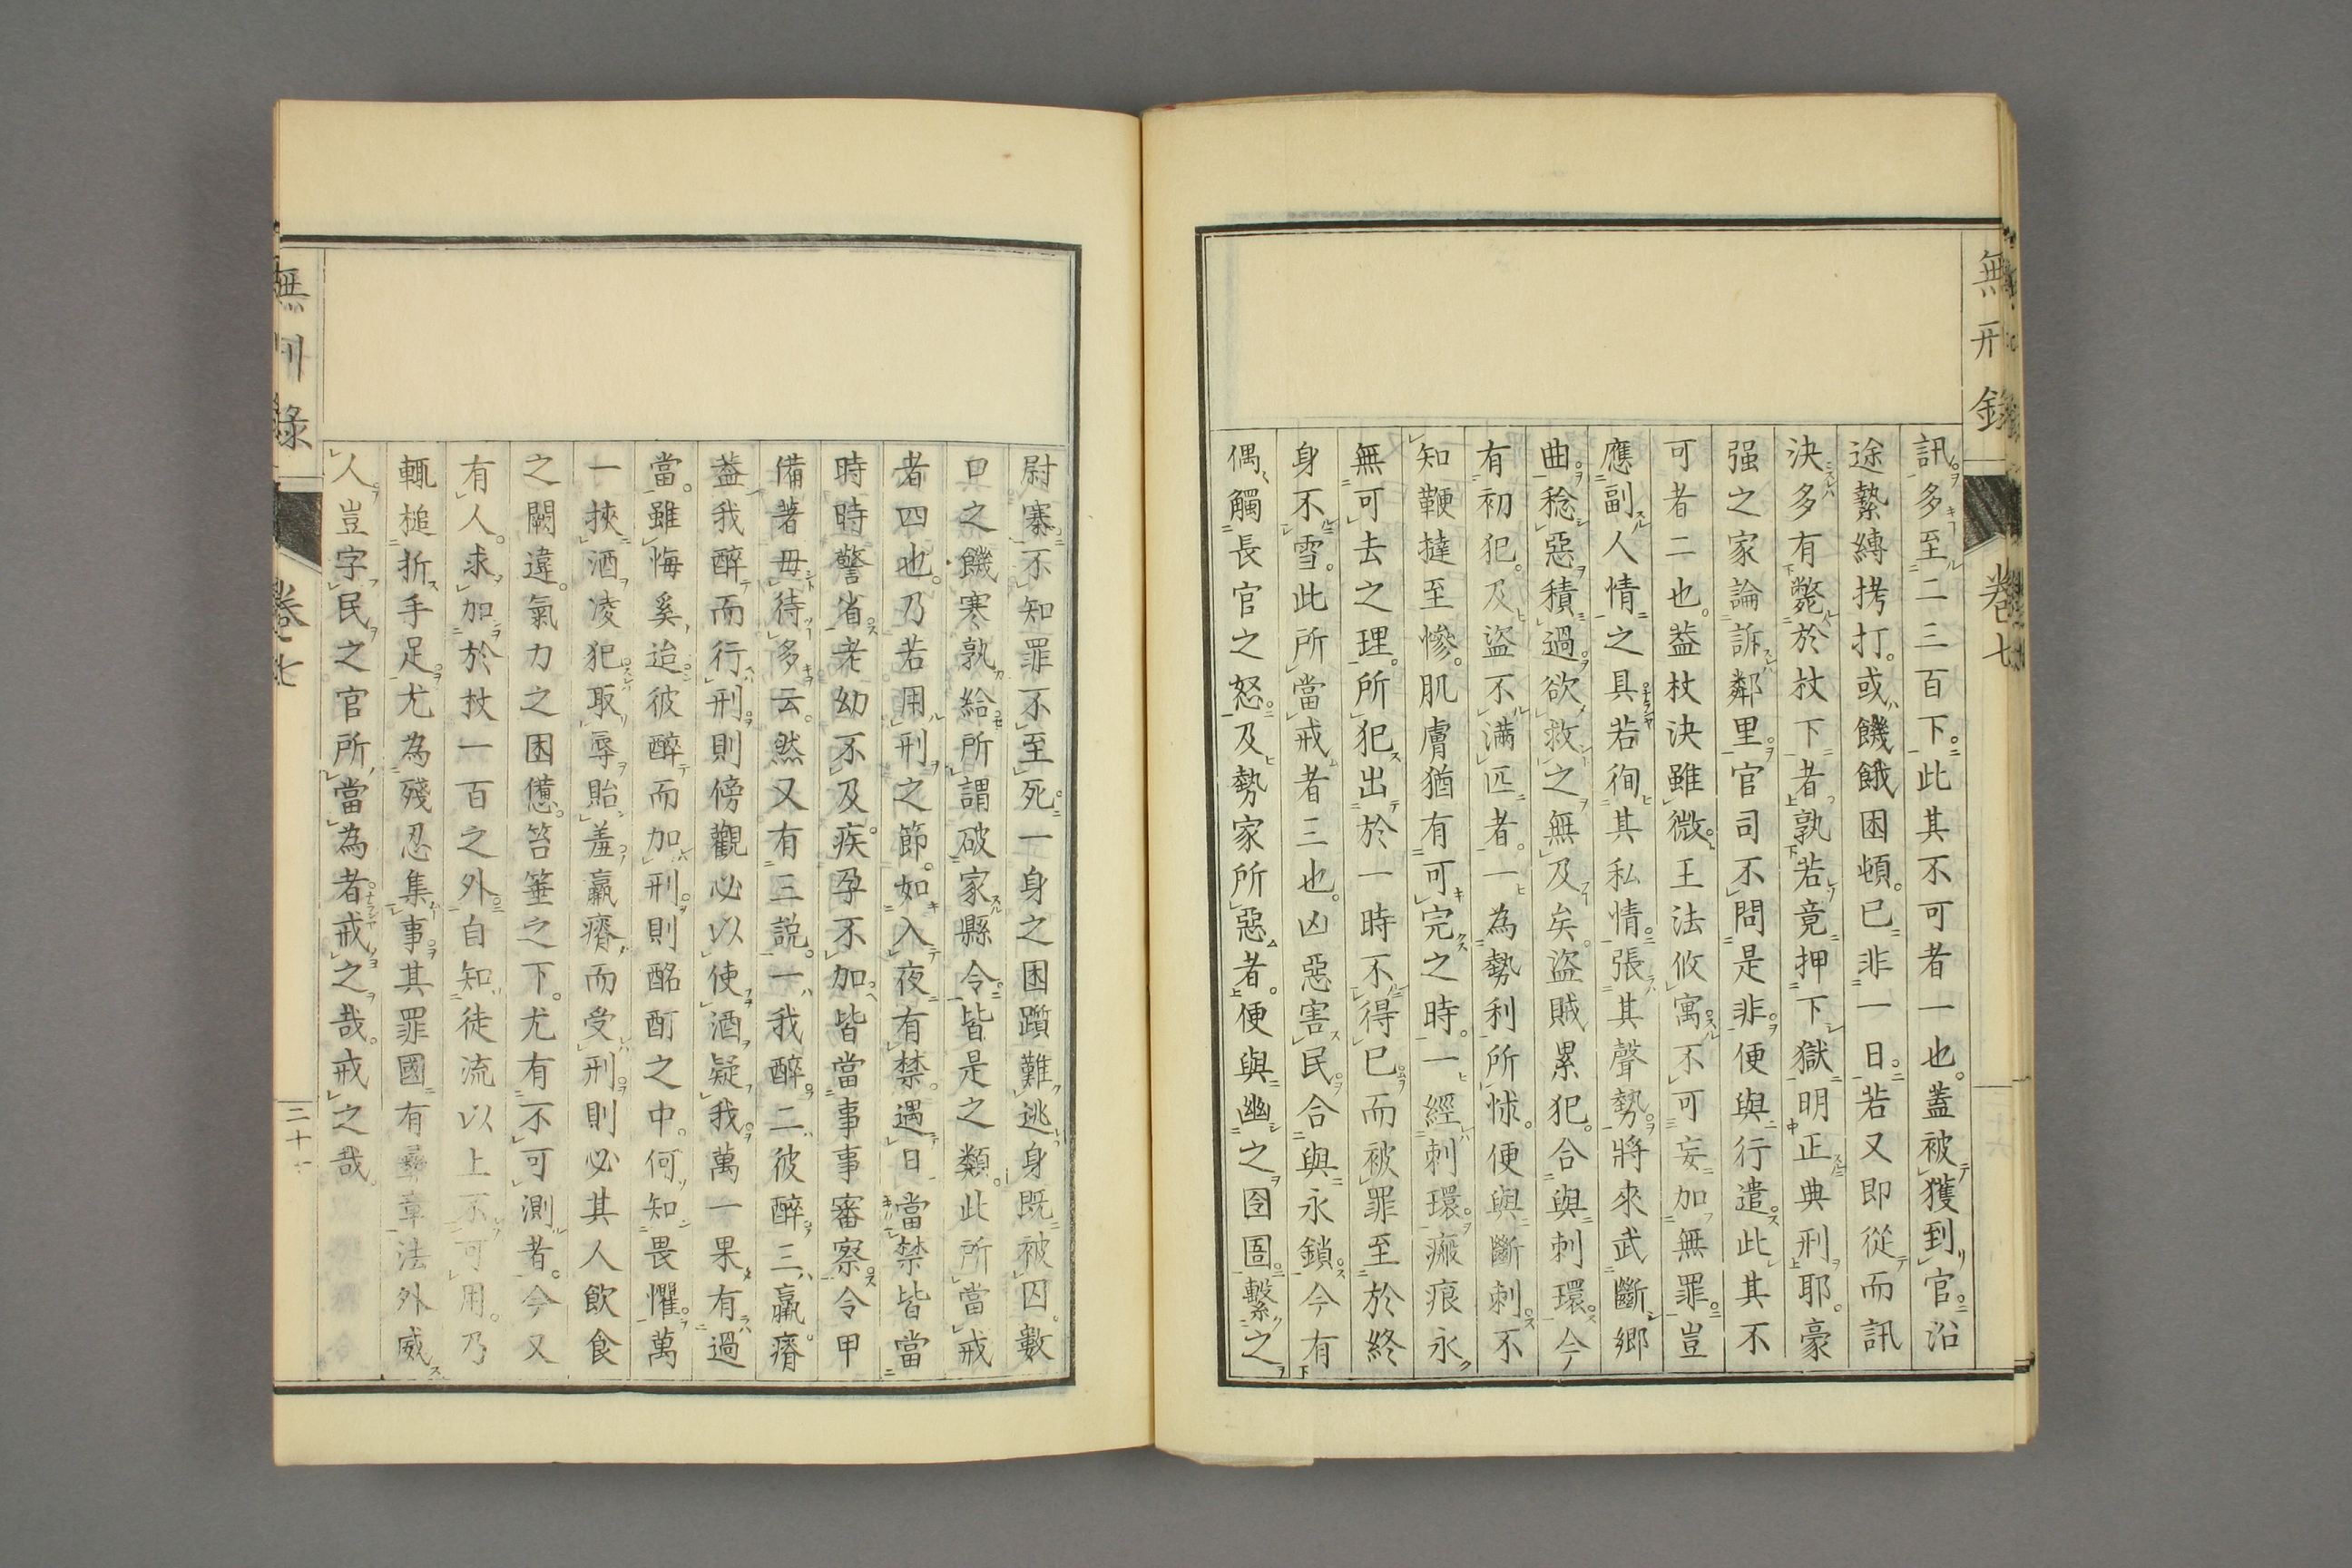 無刑錄
卷七
訊多至二三百下此其不可者一也蓋被獲到官沿
途縶縛拷打或饑餓困頓已非一日若又即從而訊
決多有斃於杖下者孰若竟押下獄明正典刑耶豪
强之家論訴鄰里官司不問是非便與行遣此其不
可者二也蓋杖決雖微王法攸寓不可妄加無罪豈
應副人情之具若徇其私情張其聲勢將來武斷鄉
曲稔惡積過欲救之無及矣盜賊累犯合與刺環今
有初犯及盜不滿匹者一為勢利所怵便與斷刺不
知鞭撻至慘肌膚猶有可完之時一經刺環瘢痕永
無可去之理所犯出於一時不得已而被罪至於終
身不雪此所當戒者三也凶惡害民合與永鎖今有
偶觸長官之怒及勢家所惡者便與幽之囹圄繫之
尉寨不知罪不至死一身之困躓難逃身既被囚數
口之饑寒孰給所謂破家縣令皆是之類此所當戒
者四也乃若用刑之節如入夜有禁遇日當禁皆當
時時警省老幼不及疾孕不加皆當事事審察令甲
備著毋待多云然又有三説一我醉二彼醉三羸瘠
蓋我醉而行刑則傍觀必以使酒疑我萬一果有過
當雖悔奚迨彼醉而加刑則酩酊之中何知畏懼萬
一挾酒凌犯取辱貽羞羸瘠而受刑則必其人飲食
之闕違氣力之困憊笞箠之下尤有不可測者今又
有人求加於杖一百之外自知徒流以上不可用乃
輒槌折手足尤為殘忍集事其罪國有彝章法外威
人豈字民之官所當為者戒之哉戒之哉
無刑錄
卷七
三十一